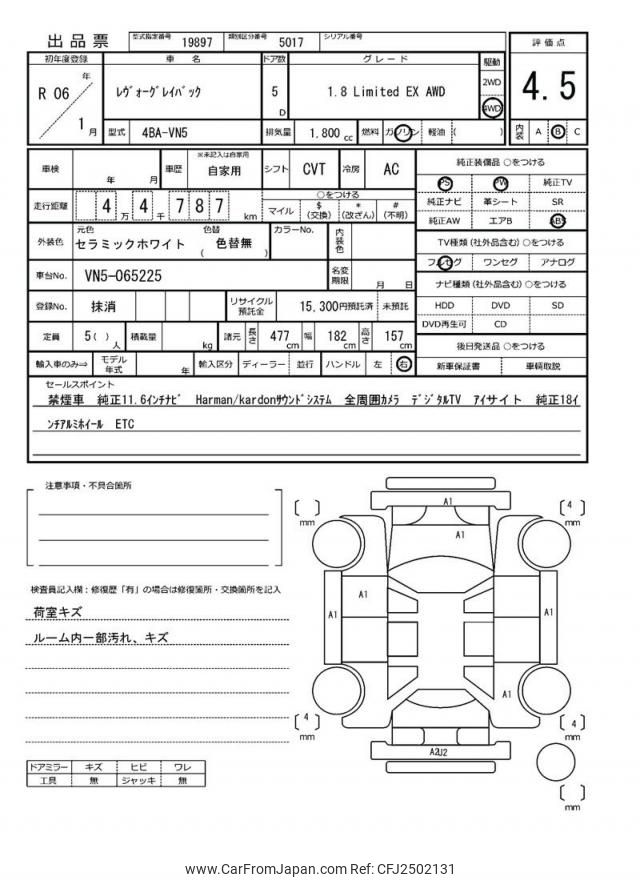 出品票 型式指定番号 19897 類別区分番号 5017 シリアル番号
初年度登録 車名 ドア数 グレード 駆動 評価点
R 06 年 1 月 レヴォーグレイバック 5 D 1.8 Limited EX AWD 2WD 4WD 4.5
型式 4BA-VN5 排気量 1.800 cc 燃料 ガソリン 軽油 ( ) 内装 A B C
車検 年 月 車歴 ※未記入は自家用 自家用 シフト CVT 冷房 AC 純正装備品 ○をつける
PS PW 純正TV
走行距離 4 万 4 千 7 8 7 km ○をつける
マイル $ (交換) * (改ざん) # (不明) 純正ナビ 革シート SR
純正AW エアB ABS
外装色 元色 セラミックホワイト 色替 ( 色替無 ) カラーNo. 内装色 TV種類 (社外品含む) ○をつける
フルセグ ワンセグ アナログ
車台No. VN5-065225 名変期限 月 日 ナビ種類 (社外品含む) ○をつける
登録No. 抹消 リサイクル預託金 15,300円預託済 未預託 HDD DVD SD
DVD再生可 CD
定員 5( ) 人 積載量 kg 諸元 長さ 477 cm 幅 182 cm 高さ 157 cm 後日発送品 ○をつける
輸入車のみ⇒ モデル年式 年 輸入区分 ディーラー 並行 ハンドル 左 右 新車保証書 車輌取説
セールスポイント
禁煙車 純正11.6インチナビ Harman/kardonサウンドシステム 全周囲カメラ デジタルTV アイサイト 純正18イ
ンチアルミホイール ETC
注意事項・不具合箇所
検査員記入欄：修復歴「有」の場合は修復箇所・交換箇所を記入
荷室キズ
ルーム内一部汚れ、キズ
ドアミラー キズ ヒビ ワレ
工具 無 ジャッキ 無
A1
[ ] mm
[ 4 ] mm
A1
A1
A1
A1
A1
[ 4 ] mm
[ 4 ] mm
A2U2
[ ] mm
www.CarFromJapan.com Ref: CFJ2502131